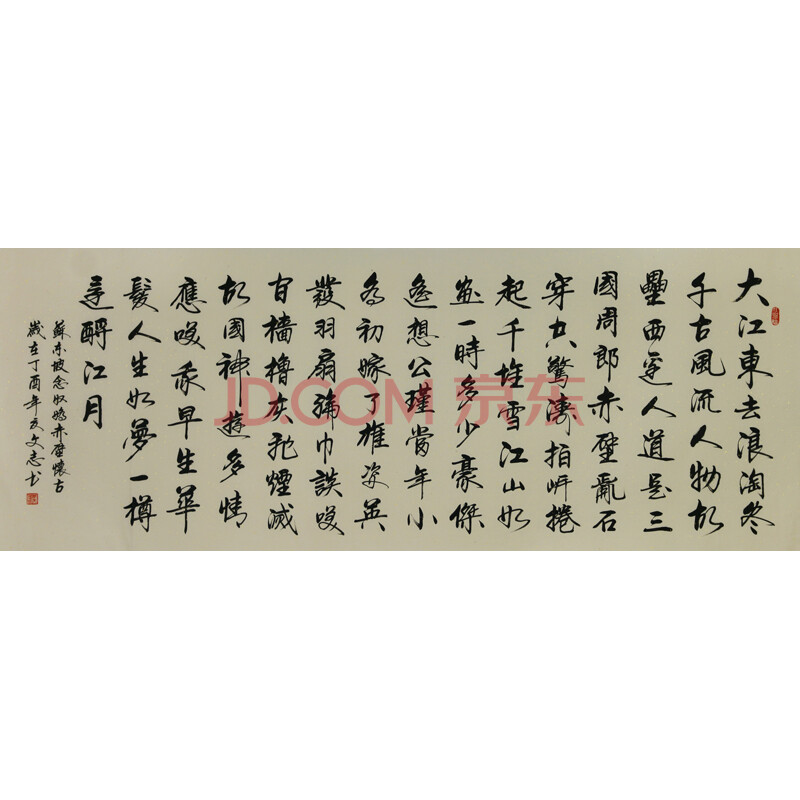 大江東去浪淘尽
千古風流人物故
壘西邊人道是三
國周郎赤壁亂石
穿空驚濤拍岸捲
起千堆雪江山如
畫一時多少豪傑
遙想公瑾當年小
喬初嫁了雄姿英
發羽扇綸巾談笑
間檣櫓灰飛煙滅
故國神遊多情
應笑我早生華
髮人生如夢一樽
還酹江月
蘇东坡念奴嬌赤壁懷古
歲在丁酉年友文志书
JD.COM 京东